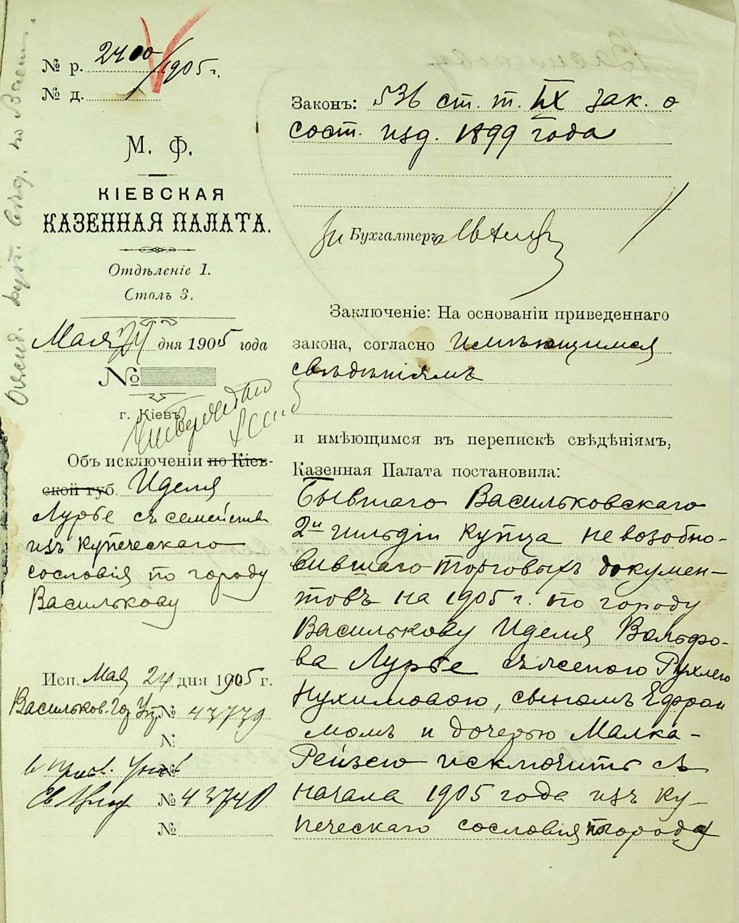 № р. 2400/1905 г.
№ д.
М. Ф.
КІЕВСКАЯ
КАЗЕННАЯ ПАЛАТА.
Отдѣленіе 1.
Столъ 3.
Мая 24 дня 1905 года
№
г. Кіевъ
Объ исключеніи по Кіев-
ской губ. Иделя
Лурье съ семейств
изъ купеческаго
сословія по городу
Василькову
Исп. Мая 24 дня 1905 г.
Васильков. Гор. Упр № 43739
№
№ 43740
№
Законъ: 536 ст. т. IX зак. о
сост. изд. 1899 года
Бухгалтеръ
Заключеніе: На основаніи приведеннаго
закона, согласно имѣющимся
свѣдѣніямъ
и имѣющимся въ перепискѣ свѣдѣніямъ,
Казенная Палата постановила:
Бывшаго Васильковскаго
2й гильдіи купца невозобно-
вившаго торговыхъ докумен-
товъ на 1905 г. по городу
Василькову Иделя Вольфо-
ва Лурье съ женою Рухлею
Нухимовою, сыномъ Ефрои
момъ и дочерью Малка-
Рейзею исключить съ
начала 1905 года изъ ку-
печескаго сословія по городу